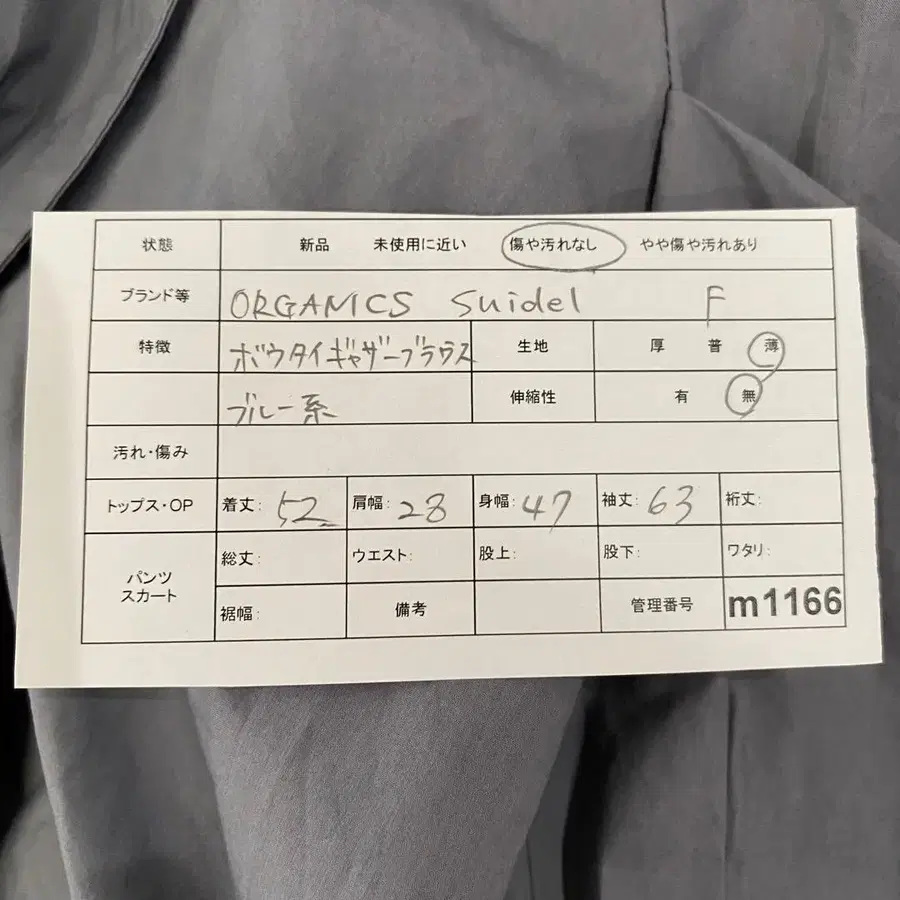 状態 新品 未使用に近い 傷や汚れなし やや傷や汚れあり
ブランド等 ORGANICS Suidel F
特徴 ボウタイギャザーブラウス 生地 厚 普 薄
ブルー系 伸縮性 有 無
汚れ・傷み
トップス・OP 着丈: 52 肩幅: 28 身幅: 47 袖丈: 63 裄丈:
パンツ スカート 総丈: ウエスト: 股上: 股下: ワタリ:
裾幅: 備考 管理番号 m1166